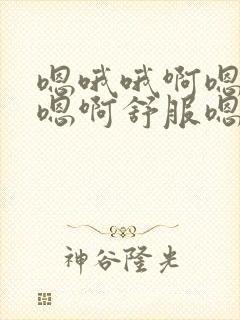 嗯哦哦啊嗯
嗯啊舒服嗯
神谷隆光